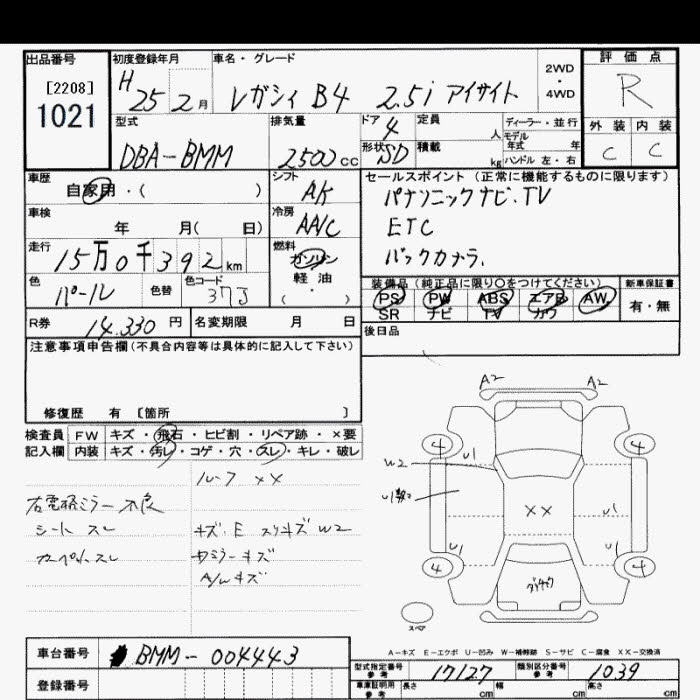 出品番号
[2208]
1021
初度登録年月
H 25 2月
車名・グレード
レガシィ B4 2.5i アイサイト
2WD
・
4WD
評価点
R
外装 内装
C C
型式
DBA-BMM
排気量
2500cc
ドア
4
形状
SD
定員
人
積載
kg
ディーラー・並行
モデル
年式 年
ハンドル 左・右
車歴
自家用・( )
シフト
AK
セールスポイント (正常に機能するものに限ります)
パナソニックナビ.TV
ETC
バックカメラ.
車検
年 月( 日)
冷房
AA/C
走行
15万0千392km
燃料
ガソリン
軽油
( ・ )
色
パール
色替
色コード
37J
装備品 (純正品に限り○をつけてください)
PS PW ABS エアB AW
SR ナビ TV カワ
新車保証書
有・無
R券
14.330円
名変期限 月 日
後日品
注意事項申告欄(不具合内容等は具体的に記入して下さい)
修復歴 有 〔箇所 〕
検査員
記入欄
FW キズ・飛石・ヒビ割・リペア跡・×要
内装 キズ・汚レ・コゲ・穴・スレ・キレ・破レ
ルーフ ××
右電格ミラー不良
シート スレ
キズ.E スリキズ W2
カーペットスレ
サミラーキズ
A/W キズ
A2 A2
4 4
W2 U1
U1
××
U1
U1 U1
4 4
スペア
A-キズ E-エクボ U-凹み W-補修跡 S-サビ C-腐食 XX-交換済
車台番号
BMM-004443
登録番号
型式指定番号
参考
17127
類別区分番号
参考
1039
車庫証明用
参考
長さ cm
幅 cm
高さ cm